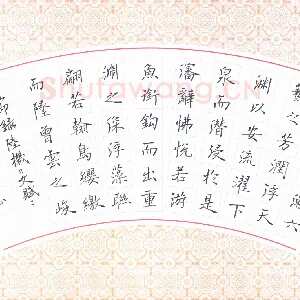 六
藝之芳潤浮天
淵以安流濯下
泉而潛浸於是
瀋辭怫悅若游
魚銜鈎而出重
淵之深浮藻聯
翩若翰鳥纓繳
而墜曾雲之峻
節錄陸機文賦
Shufawang.CN